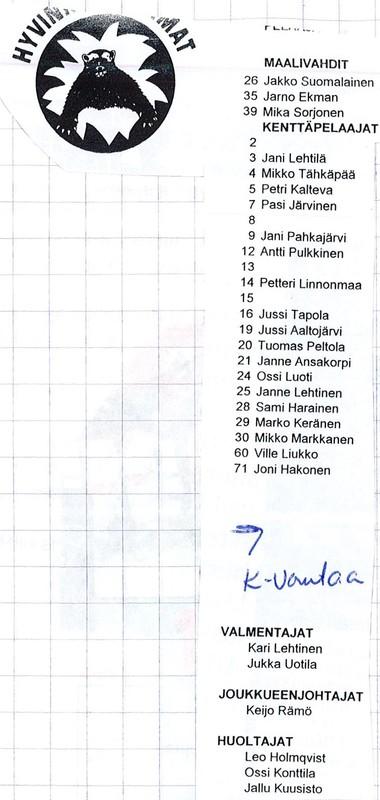 MAALIVAHDIT
26 Jakko Suomalainen
35 Jarno Ekman
39 Mika Sorjonen
KENTTÄPELAAJAT
2
3 Jani Lehtilä
4 Mikko Tähkäpää
5 Petri Kalteva
7 Pasi Järvinen
8
9 Jani Pahkajärvi
12 Antti Pulkkinen
13
14 Petteri Linnonmaa
15
16 Jussi Tapola
19 Jussi Aaltojärvi
20 Tuomas Peltola
21 Janne Ansakorpi
24 Ossi Luoti
25 Janne Lehtinen
28 Sami Harainen
29 Marko Keränen
30 Mikko Markkanen
60 Ville Liukko
71 Joni Hakonen
K-Vantaa
VALMENTAJAT
Kari Lehtinen
Jukka Uotila
JOUKKUEENJOHTAJAT
Keijo Rämö
HUOLTAJAT
Leo Holmqvist
Ossi Konttila
Jallu Kuusisto